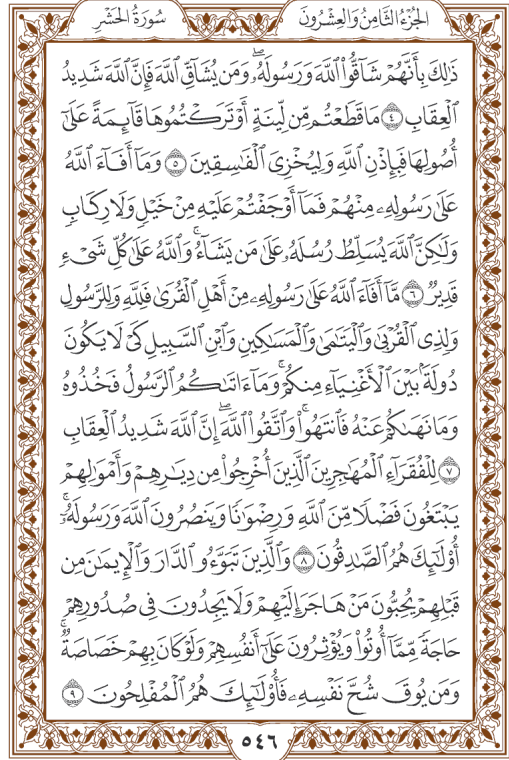 الجُزْءُ الثَّامِنُ وَالعِشْرُونَ
سُورَةُ الحَشْرِ
ذَٰلِكَ بِأَنَّهُمْ شَآقُّوا۟ ٱللَّهَ وَرَسُولَهُۥۖ وَمَن يُشَآقِّ ٱللَّهَ فَإِنَّ ٱللَّهَ شَدِيدُ
ٱلْعِقَابِ ٤ مَا قَطَعْتُم مِّن لِّينَةٍ أَوْ تَرَكْتُمُوهَا قَآئِمَةً عَلَىٰٓ
أُصُولِهَا فَبِإِذْنِ ٱللَّهِ وَلِيُخْزِىَ ٱلْفَـٰسِقِينَ ٥ وَمَآ أَفَآءَ ٱللَّهُ
عَلَىٰ رَسُولِهِۦ مِنْهُمْ فَمَآ أَوْجَفْتُمْ عَلَيْهِ مِنْ خَيْلٍ وَلَا رِكَابٍ
وَلَـٰكِنَّ ٱللَّهَ يُسَلِّطُ رُسُلَهُۥ عَلَىٰ مَن يَشَآءُۚ وَٱللَّهُ عَلَىٰ كُلِّ شَىْءٍ
قَدِيرٌ ٦ مَّآ أَفَآءَ ٱللَّهُ عَلَىٰ رَسُولِهِۦ مِنْ أَهْلِ ٱلْقُرَىٰ فَلِلَّهِ وَلِلرَّسُولِ
وَلِذِى ٱلْقُرْبَىٰ وَٱلْيَتَـٰمَىٰ وَٱلْمَسَـٰكِينِ وَٱبْنِ ٱلسَّبِيلِ كَىْ لَا يَكُونَ
دُولَةًۢ بَيْنَ ٱلْأَغْنِيَآءِ مِنكُمْۚ وَمَآ ءَاتَىٰكُمُ ٱلرَّسُولُ فَخُذُوهُ
وَمَا نَهَىٰكُمْ عَنْهُ فَٱنتَهُوا۟ۚ وَٱتَّقُوا۟ ٱللَّهَۖ إِنَّ ٱللَّهَ شَدِيدُ ٱلْعِقَابِ
٧ لِلْفُقَرَآءِ ٱلْمُهَـٰجِرِينَ ٱلَّذِينَ أُخْرِجُوا۟ مِن دِيَـٰرِهِمْ وَأَمْوَٰلِهِمْ
يَبْتَغُونَ فَضْلًا مِّنَ ٱللَّهِ وَرِضْوَٰنًا وَيَنصُرُونَ ٱللَّهَ وَرَسُولَهُۥٓۚ
أُو۟لَـٰٓئِكَ هُمُ ٱلصَّـٰدِقُونَ ٨ وَٱلَّذِينَ تَبَوَّءُو ٱلدَّارَ وَٱلْإِيمَـٰنَ مِن
قَبْلِهِمْ يُحِبُّونَ مَنْ هَاجَرَ إِلَيْهِمْ وَلَا يَجِدُونَ فِى صُدُورِهِمْ
حَاجَةً مِّمَّآ أُوتُوا۟ وَيُؤْثِرُونَ عَلَىٰٓ أَنفُسِهِمْ وَلَوْ كَانَ بِهِمْ خَصَاصَةٌۚ
وَمَن يُوقَ شُحَّ نَفْسِهِۦ فَأُو۟لَـٰٓئِكَ هُمُ ٱلْمُفْلِحُونَ ٩
٥٤٦